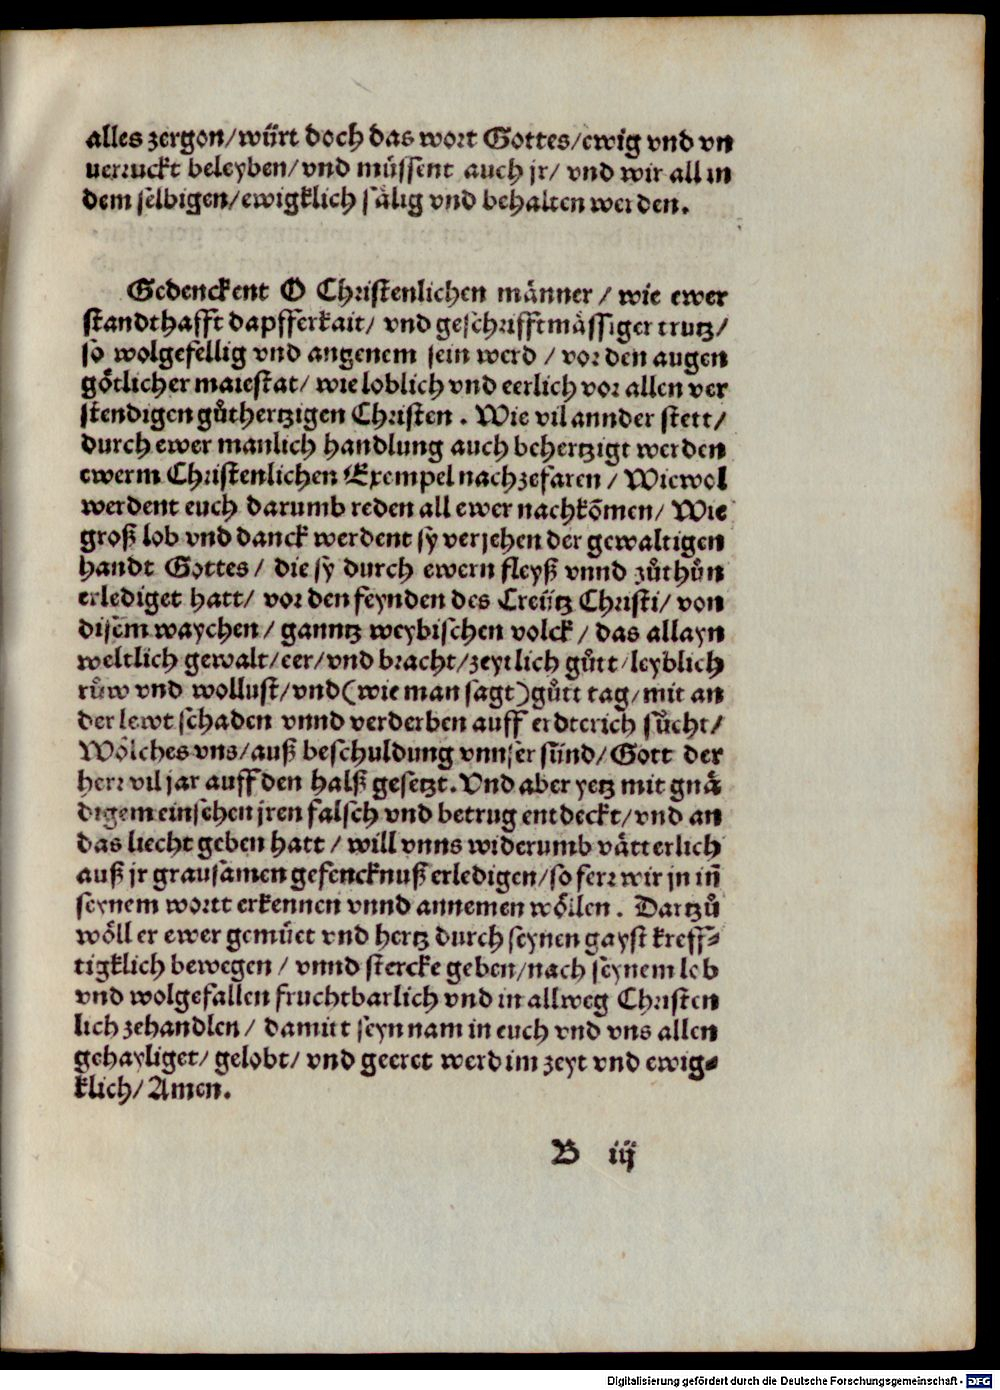 alles zergon/würt doch das wort Gottes/ewig vnd vn
uerruckt beleyben/vnd müssent auch jr/ vnd wir all in
dem selbigen/ewigklich sälig vnd behalten werden.
Gedenckent O Christenlichen männer / wie ewer
standthafft dapfferkait/ vnd geschrifftmässiger trutz/
so wolgefellig vnd angenem sein werd / vor den augen
götlicher maiestat/ wie loblich vnd eerlich vor allen ver
stendigen gůthertzigen Christen . Wie vil annder stett/
durch ewer manlich handlung auch behertzigt werden
ewerm Christenlichen Exempel nachzefaren / Wiewol
werdent euch darumb reden all ewer nachkõmen/ Wie
groß lob vnd danck werdent sy verjehen der gewaltigen
handt Gottes / die sy durch ewern fleyß vnnd zůthůn
erlediget hatt/ vor den feynden des Creütz Christi/ von
disem waychen / ganntz weybischen volck / das allayn
weltlich gewalt/eer/vnd bracht/zeytlich gůtt/leyblich
růw vnd wollust/vnd(wie man sagt)gůtt tag/mit an
der lewt schaden vnnd verderben auff erdterich sůcht/
Wölches vns/auß beschuldung vnnser sünd/Gott der
herr vil jar auff den halß gesetzt.Vnd aber yetz mit gnä
digem einsehen jren falsch vnd betrug entdeckt/vnd an
das liecht geben hatt / will vnns widerumb vätterlich
auß jr grausamen gefencknuß erledigen/so ferr wir jn iñ
seynem wortt erkennen vnnd annemen wöllen . Dartzů
wöll er ewer gemüet vnd hertz durch seynen gayst kreff-
tigklich bewegen / vnnd stercke geben/nach seynem lob
vnd wolgefallen fruchtbarlich vnd in allweg Christen
lich zehandlen/ damitt seyn nam in euch vnd vns allen
gehayliget/ gelobt/ vnd geeret werd im zeyt vnd ewig-
klich/ Amen.
B iij
Digitalisierung gefördert durch die Deutsche Forschungsgemeinschaft - DFG